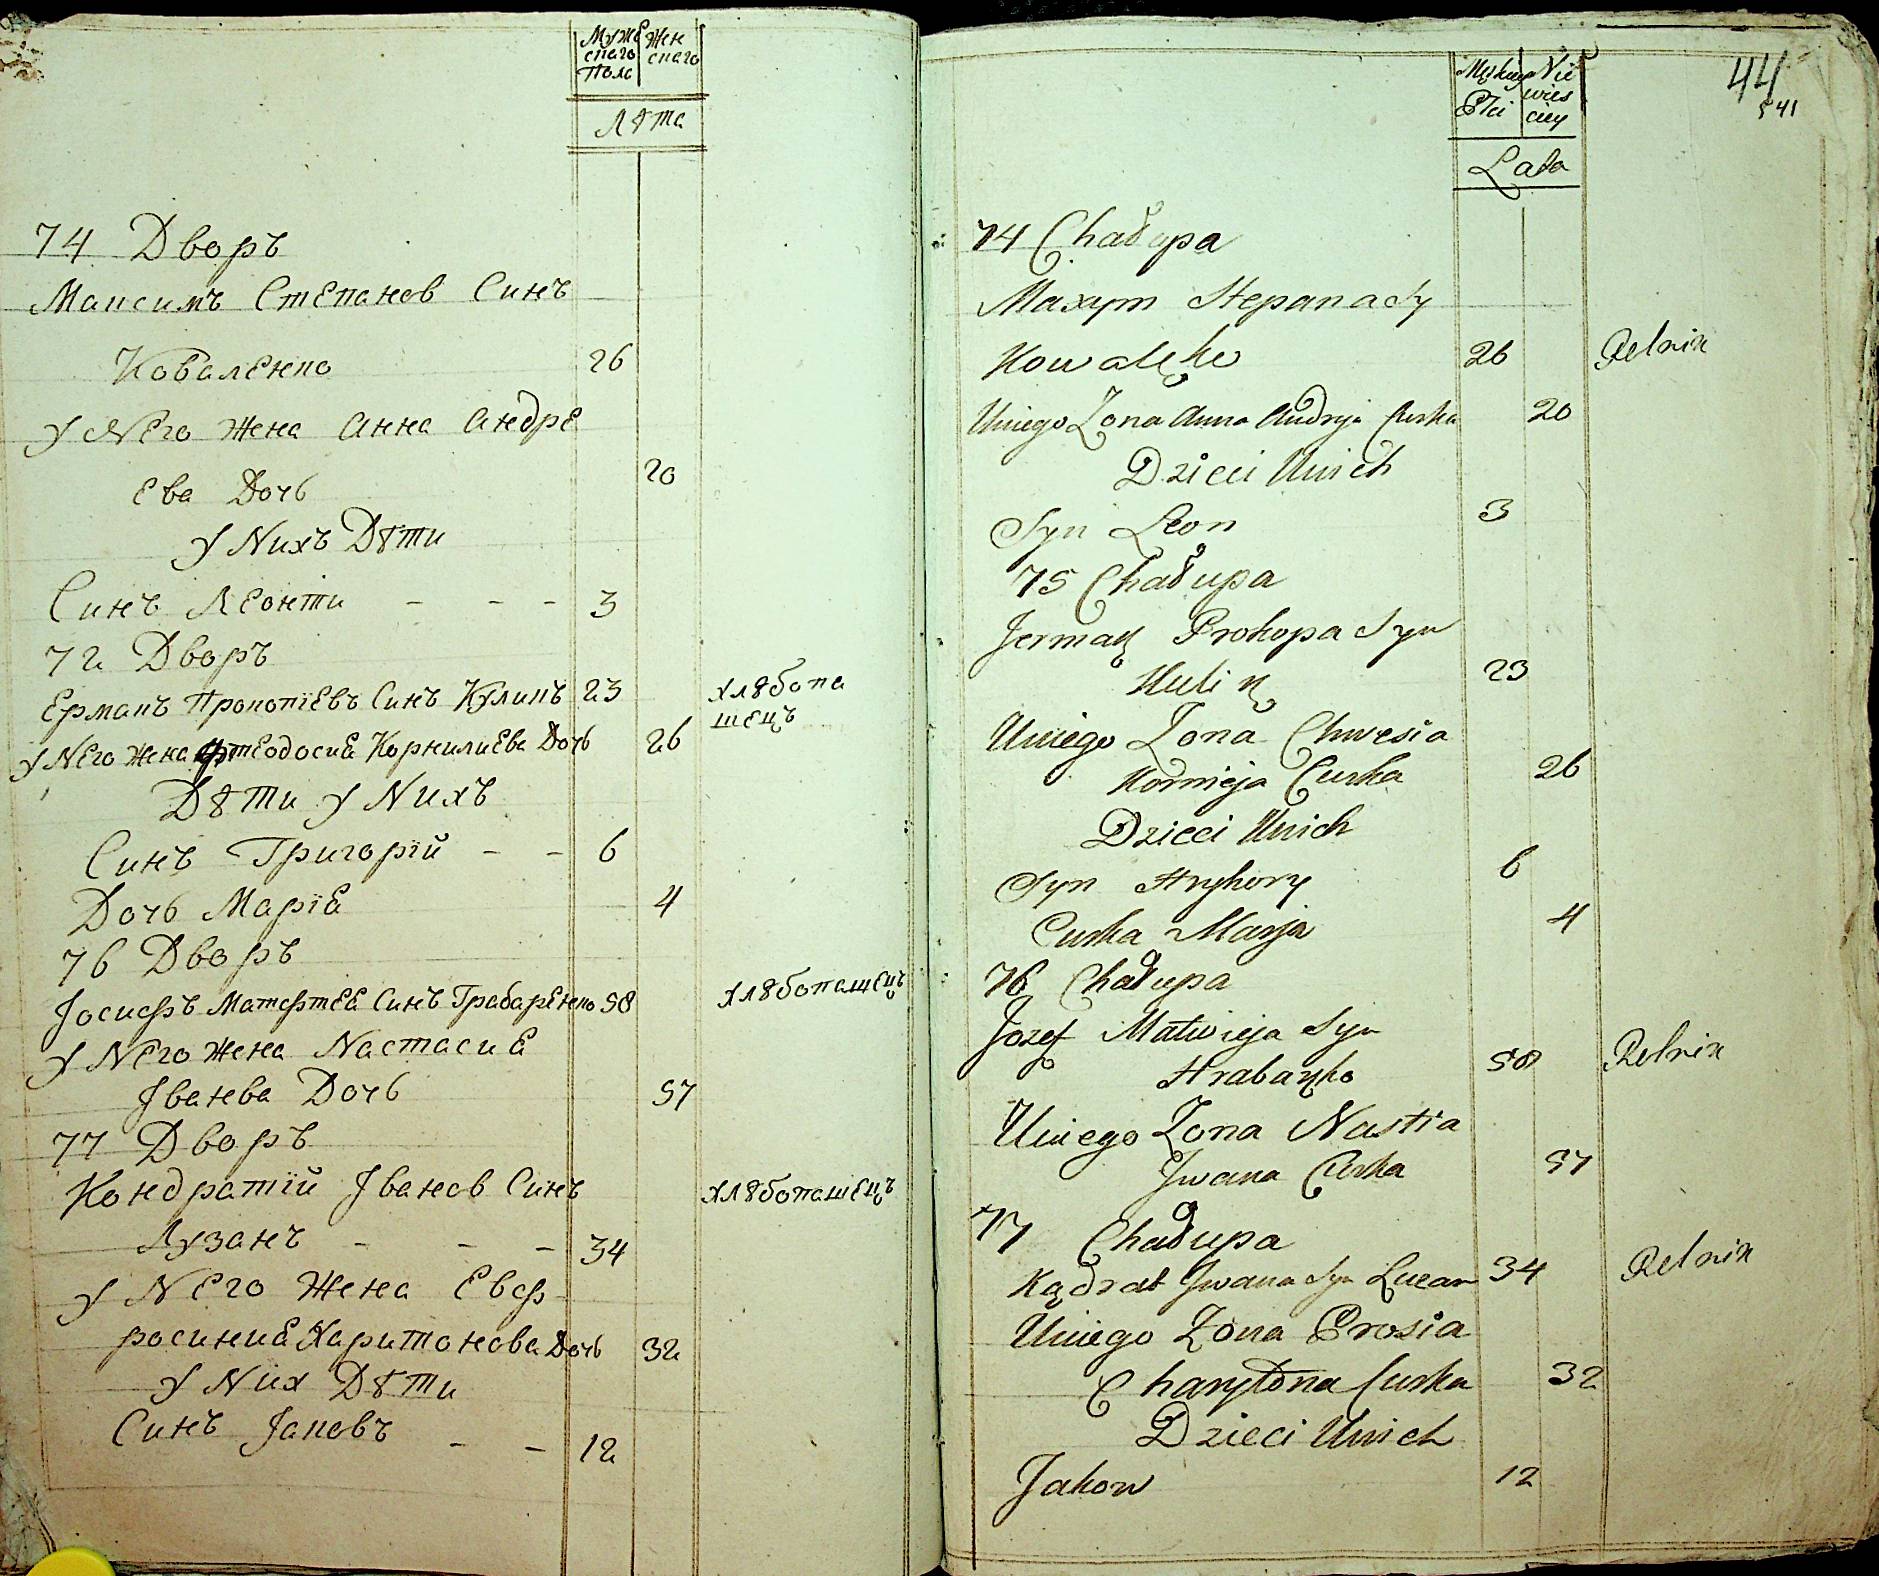 Муже Жен
скаго скаго
Пола
Лѣта
74 Дворъ
Максимъ Степанов Синъ
Коваленко 26
У Него Жена Анна Андре
ева Дочь 20
У Нихъ Дѣти
Синъ Леонти - - - 3
72 Дворъ
Ермакъ Прокопіевъ Синъ Куликъ 23 хлѣбопа
шецъ
У Него Жена Фтеодосиа Корнилиева Дочь 26
Дѣти у Нихъ
Синъ Григорій - - 6
Дочь Маріа 4
76 Дворъ
Іосифъ Матфтеа Синъ Грабаренко 58 хлѣбопашецъ
У Него Жена Настасиа
Іванева Дочь 57
77 Дворъ
Кондратій Іванов Синъ хлѣбопашецъ
Лузанъ - - - 34
У Него Жена Евф
росиниа Харитонова Дочь 32
У Них Дѣти
Синъ Іаковъ - - 12
44
541
Męskiey Nie
Płci wies
ciey
Lata
74 Chałupa
Maxym Stepana Sy
Kowalęko 26 Rolnik
Uniego Zona Anna Andryja Curka 20
Dzieci Unich
Syn Leon 3
75 Chałupa
Jermak Prokopa Syn
Kulik 23
Uniego Zona Chwesia
Kornieja Curka 26
Dzieci Unich
Syn Hryhory 6
Curka Marja 4
76 Chałupa
Jozef Matwieja Syn
Hrabaręko 58 Rolnik
Uniego Zona Nastia
Jwana Curka 57
77 Chałupa
Kądrat Jwana Syn Luzan 34 Rolnik
Uniego Zona Prosia
Charytona Curka 32
Dzieci Unich
Jakow 12